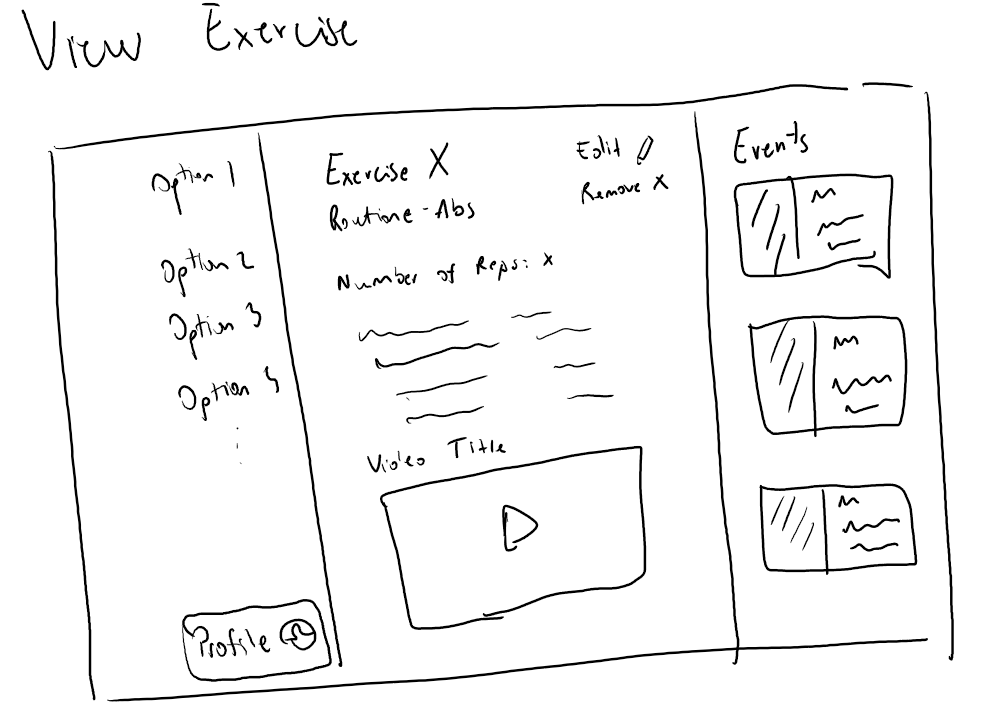 View Exercise
Option 1
Option 2
Option 3
Option 4
Profile
Exercise X
Routine - Abs
Edit
Remove X
Number of Reps: x
Video Title
Events